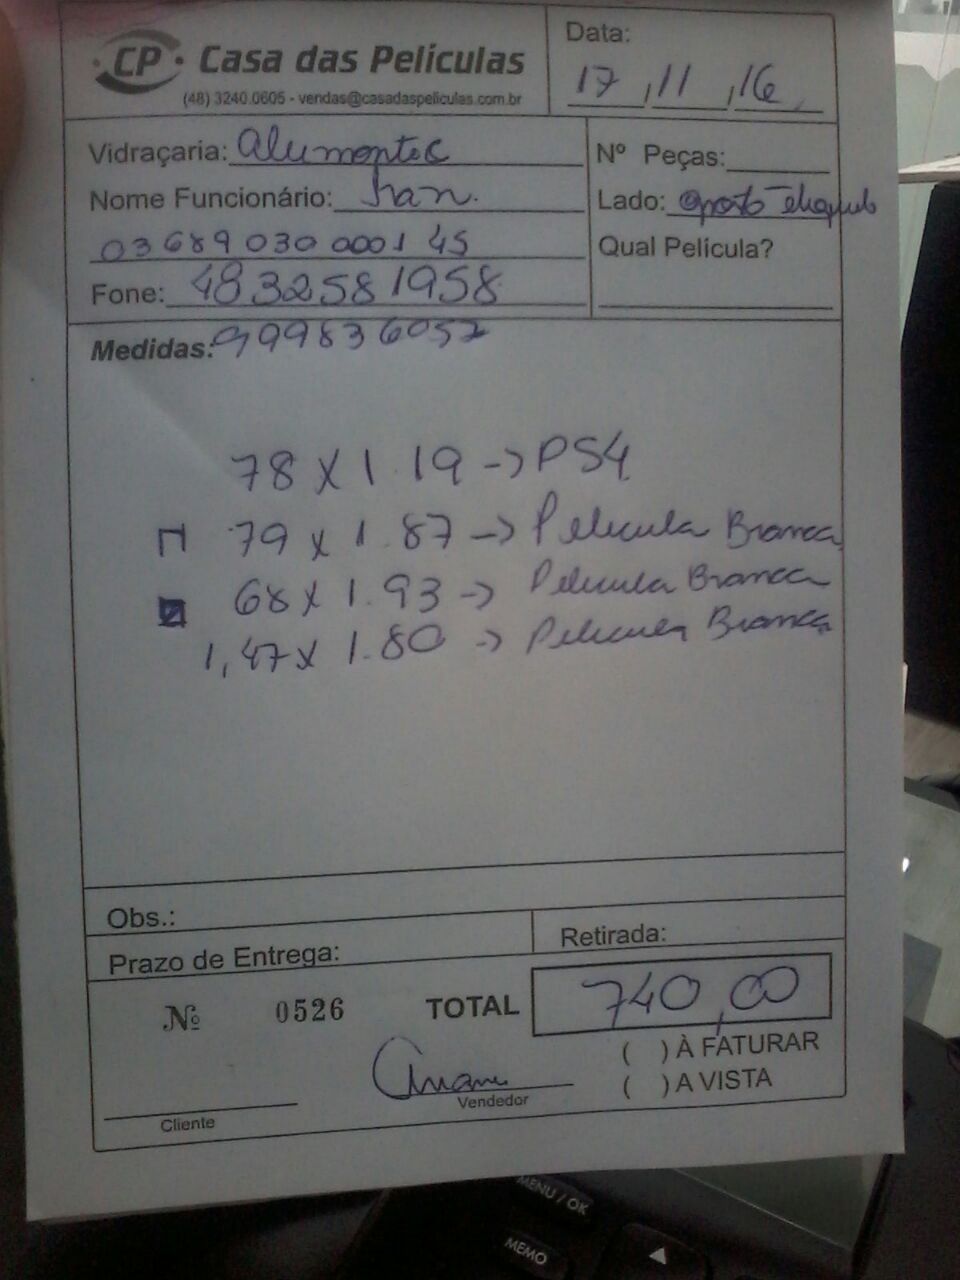 CP Casa das Películas
(48) 3240.0605 - vendas@casadaspeliculas.com.br
Data:
17 / 11 / 16
Vidraçaria: Alumontec
Nome Funcionário: Ivan.
03 689 030 0001 45
Fone: 48 32581958
Nº Peças:
Lado: oposto
Qual Película?
Medidas: 999836057
78 X 1.19 -> PS4
79 x 1.87 -> Pelicula Branca
68 x 1.93 -> Pelicula Branca
1,47 x 1.80 -> Pelicula Branca
Obs.:
Prazo de Entrega:
Retirada:
Nº 0526 TOTAL 740,00
( ) À FATURAR
( ) A VISTA
Vendedor
Cliente
MENU / OK
MEMO